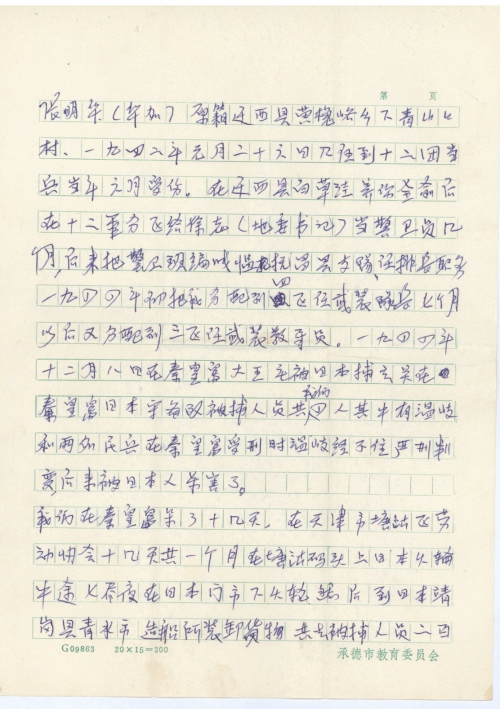 第 页
张明华(华如)原籍迁西县黄槐峪乡下青山口
村、一九四二年元月二十六日入伍到十二团当
兵当年六月党份。在迁西县白草洼养伤全愈后
在十二军分区给徐志(地委书记)当警卫员几
个月,后来把警卫班编成抗县支队任排长职务
一九四四年初把我分配到四区任武装队长七个月
以后又分配到三区任武装教导员。一九四四年
十二月八日在秦皇岛大王庄被日本捕去关在
秦皇岛日本宪兵队被捕人员共我们四人其中有温岐
和两个民兵在秦皇岛受刑时温岐经不住严刑判
变后来被日本人杀害了。
我们在秦皇岛呆了十几天。在天津市塘沽区劳
动协会十几天共一个月在塘沽码头上日本火轮
半途七昼夜在日本门市下火轮然后到日本靖
岗县青水市造船所装卸货物共去被捕人员二百
G09863 20×15=300 承德市教育委员会